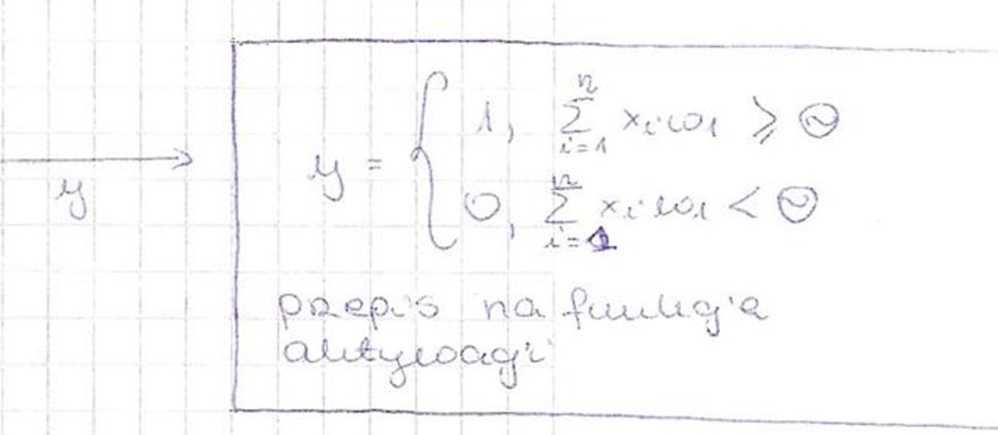 y
y = { 1, \sum_{i=1}^{n} x_i w_1 ≥ Θ
0, \sum_{i=1}^{n} x_i w_1 < Θ
przepis na funkcję
aktywacji